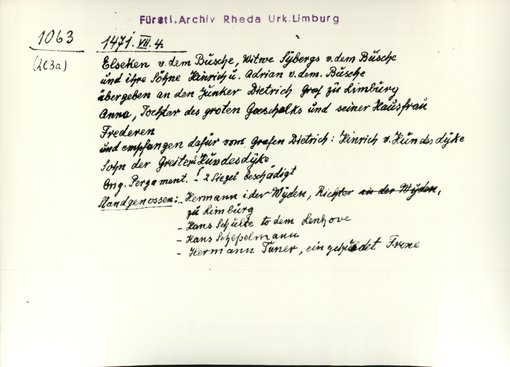 Fürstl. Archiv Rheda Urk. Limburg
1063
(263a)
1471. VII. 4.
Elseken v. dem Büsche, Witwe Sybergs v. dem Büsche
und ihre Söhne Hinrich u. Adrian v. dem. Büsche
übergeben an den Junker Dietrich Graf zu Limburg
Anna, Tochter des groten Goeschalks und seiner Hausfrau
Frederen
und empfangen dafür vom Grafen Dietrich: Hinrich v. Hundesdyke
Sohn der Greite Hundesdyke
Orig. Pergament. ! 2 Siegel beschädigt
Standgenossen: Hermann i.der Wyden, Richter in der Wyden,
zu Limburg
- Hans Schulte to dem Lenhove
- Hans Scheßelmann
- Hermann Tuner, ein Frone